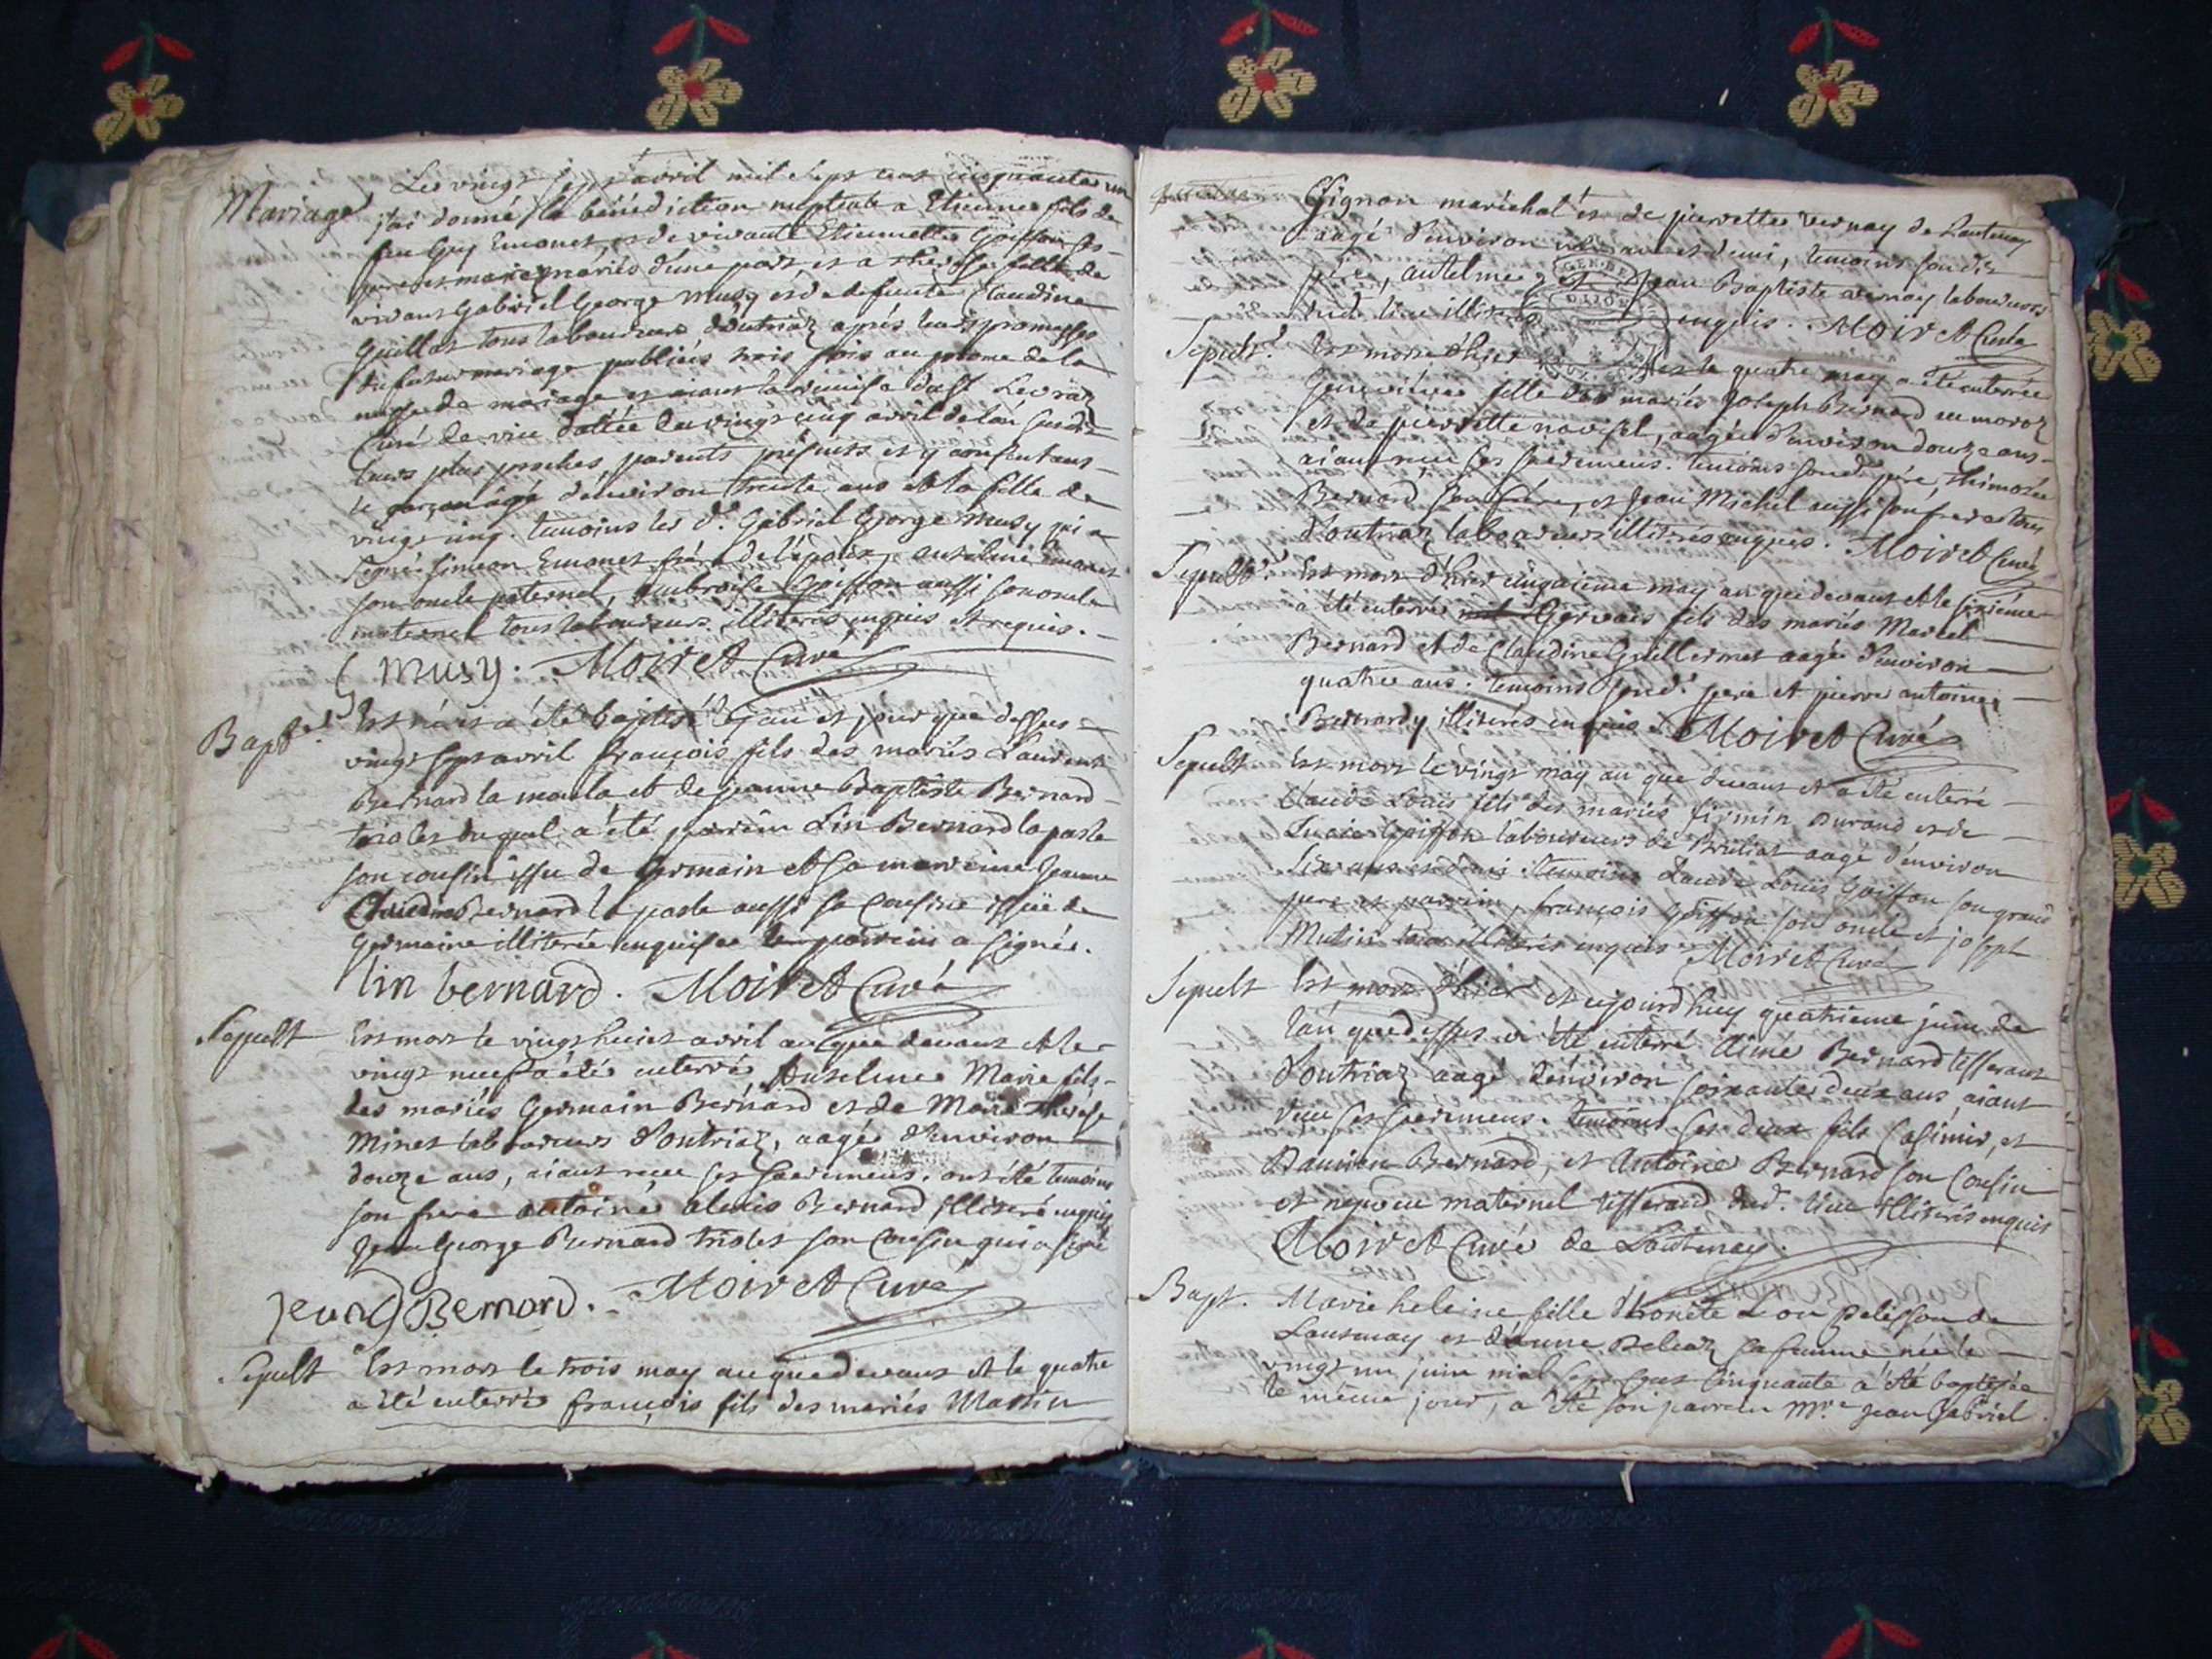 Mariage Le vingt sept avril mil sept cent cinquante un
j'ai donné la bénédiction nuptiale a Etienne fils de
feu Guy Emonet et de vivante Etiennette Goiffon ses
pere et mere mariés d'une part, et a therese fille de
vivant Gabriel George Musy et de defunte Claudine
Guillot tous laboureurs d'outriaz après leurs promesses
du futur mariage publiées trois fois au prone de la
messe de mariage et aiant la remise du Sr
Curé de vieu dattée du vingt cinq avril de l'an susdit
leurs plus proches parents présents et y consentans
le garçon âgé d'environ trente ans et la fille de
vingt cinq. temoins les d. Gabriel George Musy qui a
signé simeon Emonet frère de l'époux, anselme Emonet
son oncle paternel, ambroise Goiffon aussi son oncle
maternel tous laboureurs illiterés enquis et requis.
G musy. Moiret Curé
Bapt. Est né et a été baptisé l'an et jour que dessus
vingt sept avril françois fils des mariés Laurent
Bernard la moula et de jeanne Baptiste Bernard
trioles duquel a été parrein Lin Bernard la paste
son cousin issu de Germain et sa marreine Jeanne
Claudine Bernard la paste aussi sa Cousine issüe de
Germaine illiterée enquise le parrein a signé.
lin bernard. Moiret Curé
Sepult Est mort le vingt huict avril an que devant et le
vingt neuf a été enterré Anselme Marie fils
des mariés Germain Bernard et de Marie therese
Minet laboureurs d'outriaz, aagé d'environ
douze ans, aiant receu ses sacremens. ont été temoins
son frere antoine alexis Bernard illiteré enquis
Jean George Bernard trioles son Cousin qui a signé
Jean G Bernard. Moiret Curé
Sepult Est mort le trois may an que devant et le quatre
a été enterré françois fils des mariés Martin
Gignon maréchal et de pierrette vernay de Lantenay
aagé d'environ un an et demi, temoins son dit
père, antelme et Jean Baptiste vernay laboureurs
dud. lieu illiterés enquis. Moiret Curé
GEN. DE
DIJON
Sepult. Est morte d'hier et le quatre may a été enterrée
Genevieve fille des mariés Joseph Bernard
et de pierrette navoisel, aagée d'environ douze ans
aiant receu ses sacremens. temoins son d. père, thimotée
Bernard son frère, et Jean Michel aussi son frere tous
d'outriaz laboureurs illiterés enquis. Moiret Curé
Sepult. Est mort d'hier cinquieme may an que devant et le sixième
a été enterré Gervais fils des mariés Marcel
Bernard et de Claudine Guillermet aagé d'environ
quatre ans. temoins son d. pere et pierre antoine
Bernard illiterés enquis. Moiret Curé
Sepult Est mort le vingt may an que devant et a été enterré
Claude Louis fils des mariés firmin Durand et de
Lucie Goiffon laboureurs de Brénat aagé d'environ
six ans et demi. temoins Claude Louis Goiffon son grand
pere et parrein, françois Goiffon son oncle et joseph
Mutin tous illiterés enquis. Moiret Curé
Sepult Est mort d'hier et aujourd'huy quatrieme juin de
l'an que dessus a été enterré aimé Bernard tisserant
d'outriaz aagé d'environ soixante deux ans aiant
receu ses sacremens. temoins ses deux fils Casimir, et
Damien Bernard, et Antoine Bernard son Cousin
et neveu maternel tisserand dud. lieu illiterés enquis
Moiret Curé de Lantenay.
Bapt. Marie heleine fille d'honete Lou pelisson de
Lantenay et d'anne Beleaz sa femme née le
vingt un juin mil sept cent cinquante a été baptisée
le même jour, a été son parrein Mre Jean Gabriel